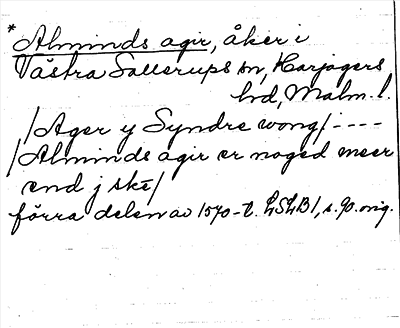 *Alminds agir, åker i
Västra Sallerups sn, Harjagers
hd, Malm. l.
/Ager y Syndre wong/----
/Alminds agir er noged meer
end j skē/
förra delen av 1570-t. LSLB1, s. 90. orig.